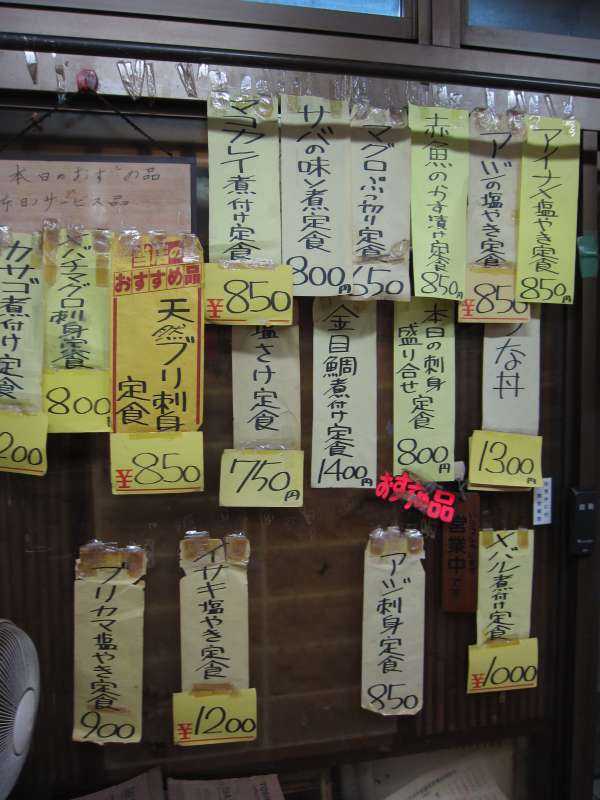 本日のおすすめ品
本日のサービス品
マコカレイ煮付け定食
¥850
サバの味噌煮定食
800円
マグロぶつ切り定食
650
赤魚のかす漬け定食
850円
アジの塩やき定食
¥850
アイナメ塩やき定食
850円
カサゴ煮付け定食
200
メバチマグロ刺身定食
800
おすすめ品
天然ブリ刺身定食
¥850
塩さけ定食
750円
金目鯛煮付け定食
1400円
本日の刺身
盛り合せ定食
800円
おすすめ品
な丼
1300円
営業中
です
ブリカマ塩やき定食
900
イサキ塩やき定食
¥1200
アジ刺身定食
850
メバル煮付け定食
¥1000